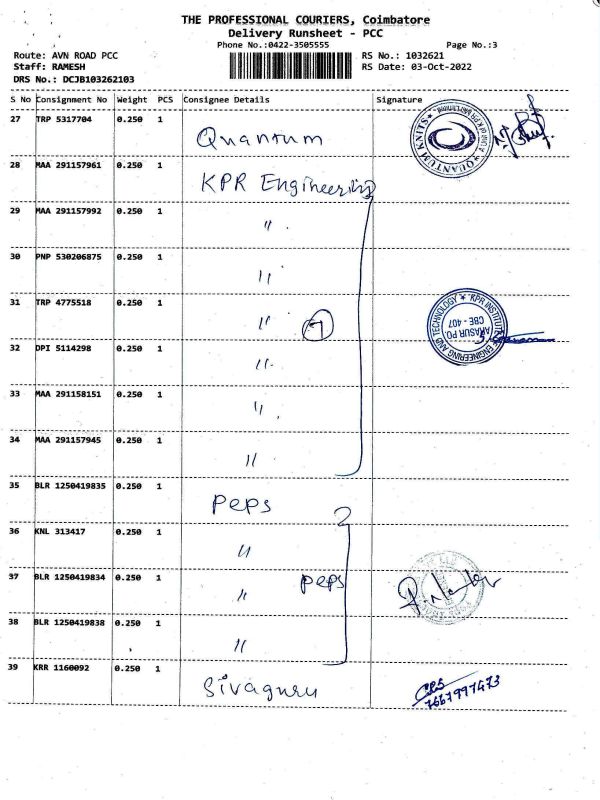 THE PROFESSIONAL COURIERS, Coimbatore
Delivery Runsheet - PCC
Phone No.:0422-3505555 Page No.:3
Route: AVN ROAD PCC RS No.: 1032621
Staff: RAMESH RS Date: 03-Oct-2022
DRS No.: DCJB103262103
S No Consignment No Weight PCS Consignee Details Signature
27 TRP 5317704 0.250 1 Quantum
QUANTUM KNITS
28 MAA 291157961 0.250 1 KPR Engineering
29 MAA 291157992 0.250 1 "
30 PNP 530206875 0.250 1 "
31 TRP 4775518 0.250 1 " 7
KPR INSTITUTE OF ENGINEERING AND TECHNOLOGY
ARASUR PO.
CBE - 407
32 DPI 5114298 0.250 1 "
33 MAA 291158151 0.250 1 "
34 MAA 291157945 0.250 1 "
35 BLR 1250419835 0.250 1 Peps
36 KNL 313417 0.250 1 "
37 BLR 1250419834 0.250 1 " Peps
38 BLR 1250419838 0.250 1 "
39 KRR 1160092 0.250 1 Sivaguru
7667997473